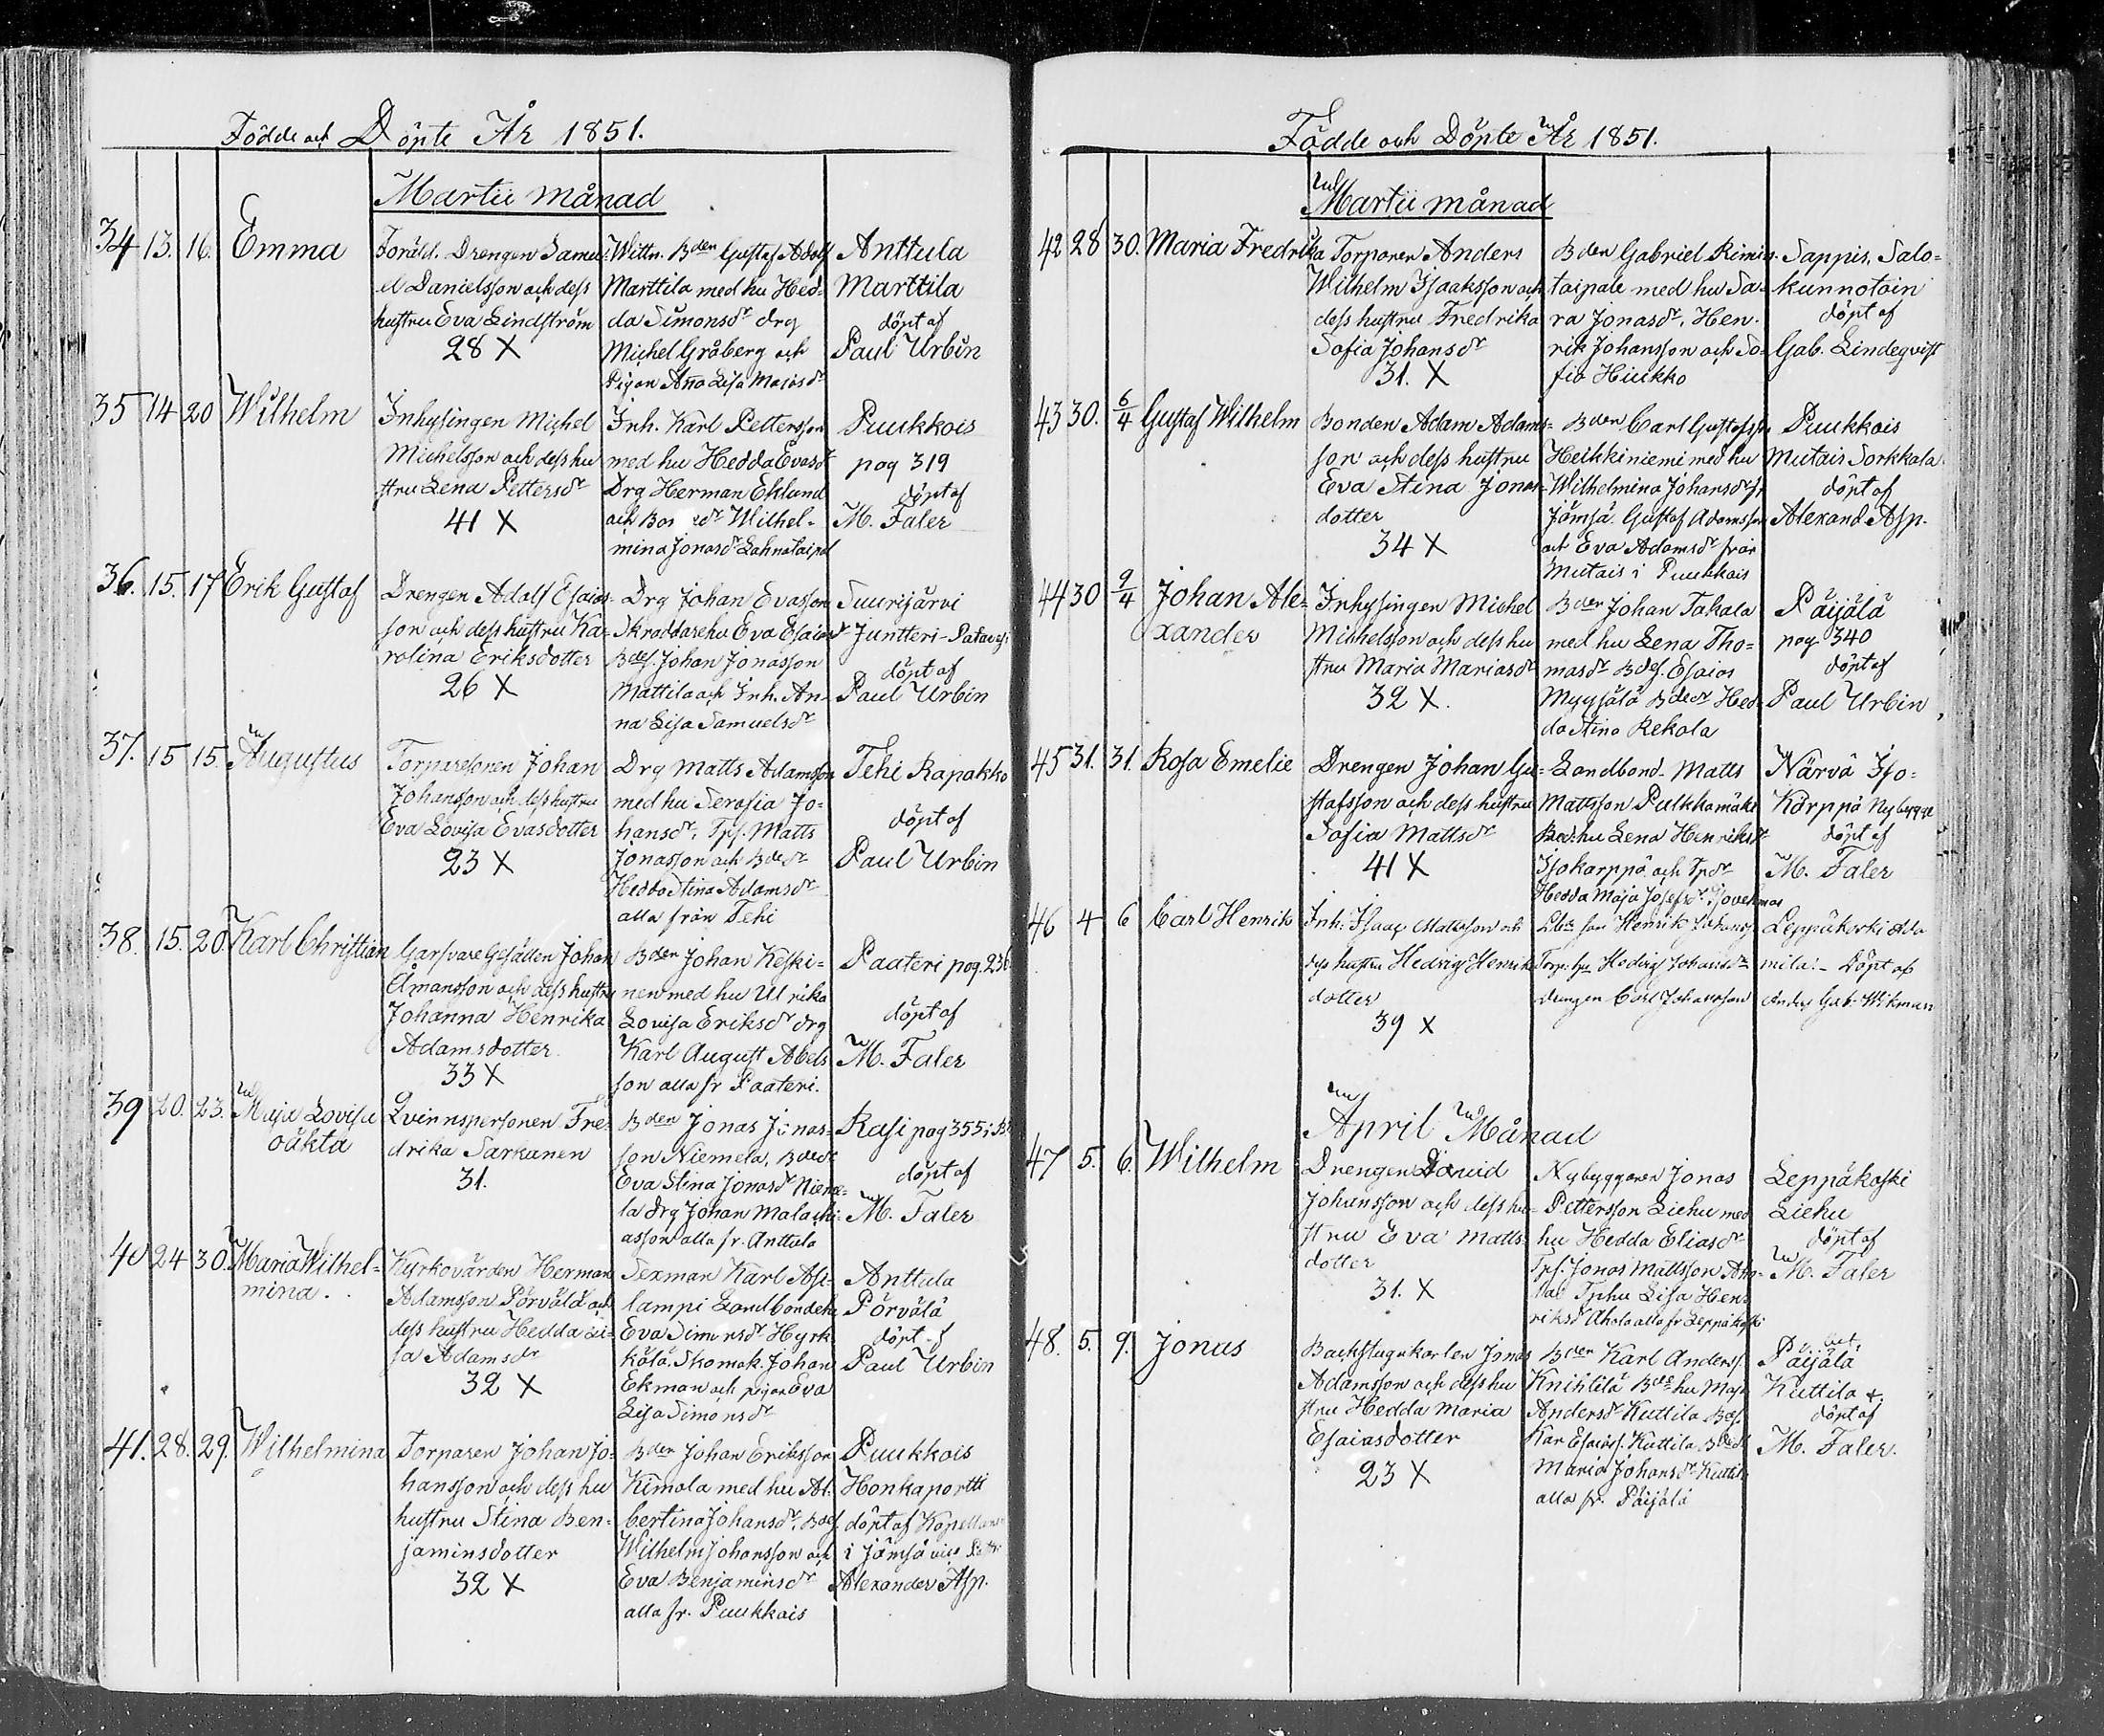 Födde och Döpte År 1851.
Martii månad
34 13. 16. Emma
Föräld. Drengen Samu-
el Danielsson och dess
hustru Eva Lindström
28 X
Wittn. Bden Gustaf Adolf
Marttila med hu Hed-
da Simonsdr drg
Michel Gråberg och
Pigan Anna Lisa Majasdr
Anttula
Marttila
döpt af
Paul Urbin
35 14 20 Wilhelm
Inhysingen Michel
Michelsson och dess hu
stru Lena Pettersdr
41 X
Inh. Karl Pettersson
med hu Hedda Evasdr
Drg Herman Eklund
och Wilhel-
mina Jonasdr Lahnataipal
Puukkois
pag 319
döpt af
M. Faler
36. 15. 17 Erik Gustaf
Drengen Adolf Esaias-
son och dess hustru Ka-
rolina Eriksdotter
26 X
Drg Johan Evasson
Skräddarehu Eva Esaiasdr
Bdes. Johan Jonasson
Mattila och Inh. An-
na Lisa Samuelsdr
Suurijärvi
Juntteri-
döpt af
Paul Urbin
37. 15 15. Augustus
Torparesonen Johan
Johansson och dess hustru
Eva Lovisa Evasdotter
23 X
Drg Matts Adamsson
med hu Serafia Jo-
hansdr, Tps. Matts
Jonasson och Bdedr
Hedda Stina Adamsdr
alla från Tehi
Tehi Rapakko
döpt af
Paul Urbin
38. 15. 20. Karl Christian
Garfvare Gesällen Johan
Åmansson och dess hustru
Johanna Henrika
Adamsdotter
33 X
Bden Johan Keski-
nen med hu Ulrika
Lovisa Eriksdr drg
Karl August Abels
son alla fr Paateri.
Paateri pag. 236
döpt af
M. Faler
39 20. 23. Maja Lovisa
oäkta
Qvinnspersonen Fre-
drika Sarkanen
31.
Bden Jonas Jonas-
son Niemelä, Bdedr
Eva Stina Jonasdr Nieme-
la drg Johan Malachi-
asson alla fr. Anttula
Rasi pag 355
döpt af
M. Faler
40 24 30. Maria Wilhel-
mina.
Kyrkovärden Herman
Adamsson Pörvälä och
dess hustru Hedda Li-
sa Adamsdr
32 X
Sexman Karl Asi-
lampi Landbondehu
Eva Simonsdr Hyrk-
kölä. Skomak. Johan
Ekman och pigan Eva
Lisa Simonsdr
Anttula
Pörvälä
döpt af
Paul Urbin
41. 28. 29. Wilhelmina
Torparen Johan Jo-
hansson och dess hu
hustru Stina Ben-
jaminsdotter
32 X
Bden Johan Eriksson
Kimola med hu Al-
bertina Johansdr, Bdes.
Wilhelm Johansson och
Eva Benjaminsdr
alla fr. Puukkois
Puukkois
Honkaportti
döpt af Kapellan
i Jämsä
Alexander Asp.
Födde och Döpte År 1851.
Martii månad
42 28 30. Maria Fredrika
Torparen Anders
Wilhelm Isaaksson och
dess hustru Fredrika
Sofia Johansdr
31. X
Bden Gabriel Rimin-
taipale med hu Sa-
ra Jonasdr, Hen-
rik Johansson och So-
fia Hiukko
Sappis, Salo-
kunnotain
döpt af
Gab. Lindeqvist
43 30. 6/4 Gustaf Wilhelm
Bonden Adam Adams-
son och dess hustru
Eva Stina Jonas-
dotter
34 X
Bden Carl Gustafss.
Heikkiniemi med hu
Wilhelmina Johansdr fr
Jämsä. Gustaf Adamsson
och Eva Adamsdr från
Mutais i Puukkois
Puukkois
Mutais Sorkkala
döpt af
Alexand. Asp.
44 30 9/4 Johan Ale-
xander
Inhysingen Michel
Michelsson och dess hu
stru Maria Mariasdr
32 X.
Bden Johan Takala
med hu Lena Tho-
masdr Bdes. Esaias
Myysälä Bdedr Hed-
da Stina Rekola
Päijälä
pag 340
döpt af
Paul Urbin
45 31. 31. Rosa Emelie
Drengen Johan Gu-
stafsson och dess hustru
Sofia Mattsdr
41 X
Landbond. Matts
Mattsson Pulkkamäki
Bod.hu Lena Henriksdr
Isokorppä och Tpdr
Hedda Maja Josefsdr
Närvä Iso-
Korppä Nybygge
döpt af
M. Faler
46 4 6 Carl Henrik
Inh: Isaac Mattsson och
dess hustru Hedvig Henriks
dotter
39 X
Henrik Johanss.
Torp: hu Hedvig Johansdr
drengen Carl Johansson
Leppäkoski Ala
mila. - Döpt af
Anders Gab. Wikman
April Månad
47 5. 6. Wilhelm
Drengen David
Johansson och dess hu-
stru Eva Matts
dotter
31. X
Nybyggaren Jonas
Pettersson Liehu med
hu Hedda Eliasdr
Tps. Jonas Mattsson Aho-
la Tphu Lisa Hen-
riksdr Ahola alla fr Leppäkoski
Leppäkoski
Liehu
döpt af
M. Faler
48. 5. 9. Jonas
Backstugukarlen Jonas
Adamsson och dess hu
stru Hedda Maria
Esaiasdotter
23 X
Bden Karl Anderss.
Knihtilä Bdehu Maja
Andersdr Kuttila Bdes.
Kar Esaiass. Kuttila Bdedr
Maria Johansdr Kuttila
alla fr. Päijälä
Päijälä
Kuttila
döpt af
M. Faler.